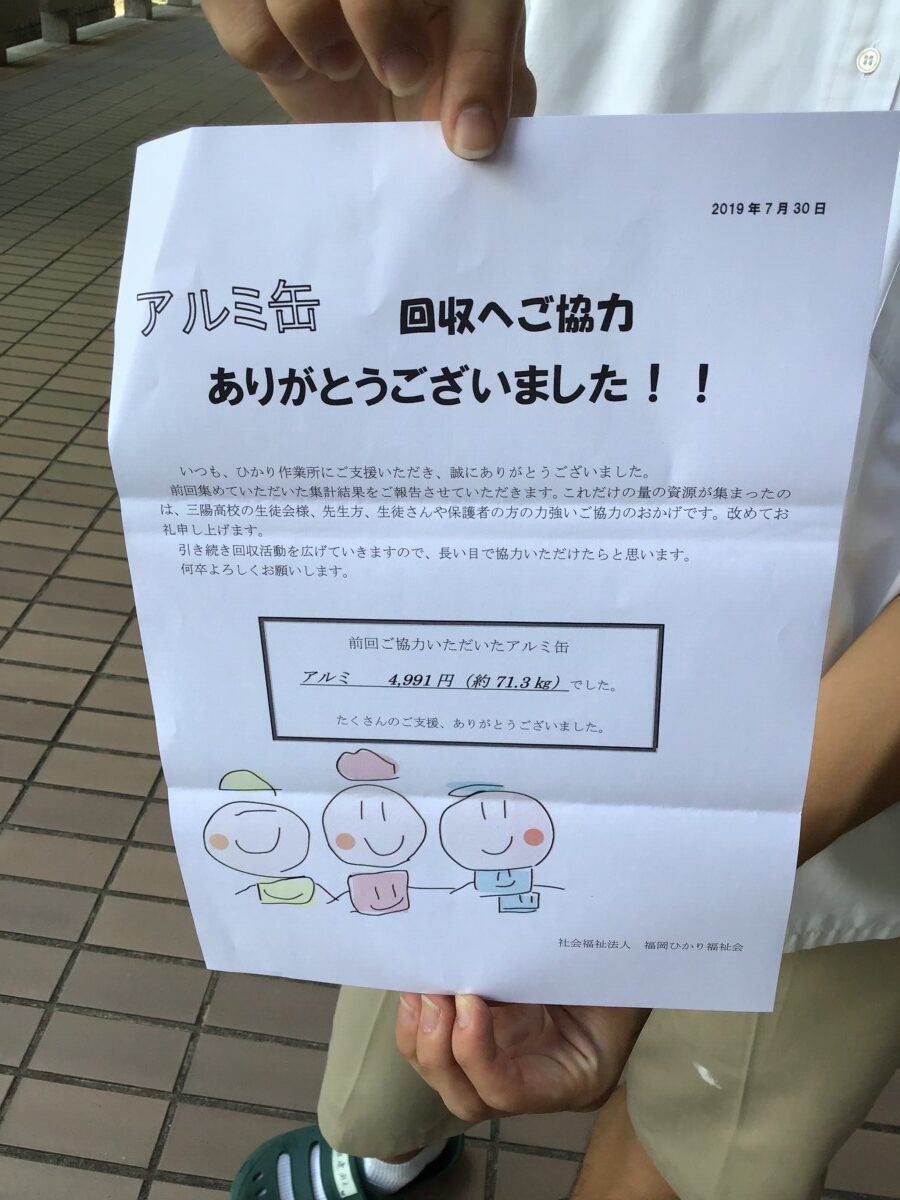 2019年7月30日
アルミ缶 回収へご協力
ありがとうございました！！
いつも、ひかり作業所にご支援いただき、誠にありがとうございました。
前回集めていただいた集計結果をご報告させていただきます。これだけの量の資源が集まったの
は、三陽高校の生徒会様、先生方、生徒さんや保護者の方の力強いご協力のおかげです。改めてお
礼申し上げます。
引き続き回収活動を広げていきますので、長い目で協力いただけたらと思います。
何卒よろしくお願いします。
前回ご協力いただいたアルミ缶
アルミ 4,991円（約71.3㎏）でした。
たくさんのご支援、ありがとうございました。
社会福祉法人 福岡ひかり福祉会